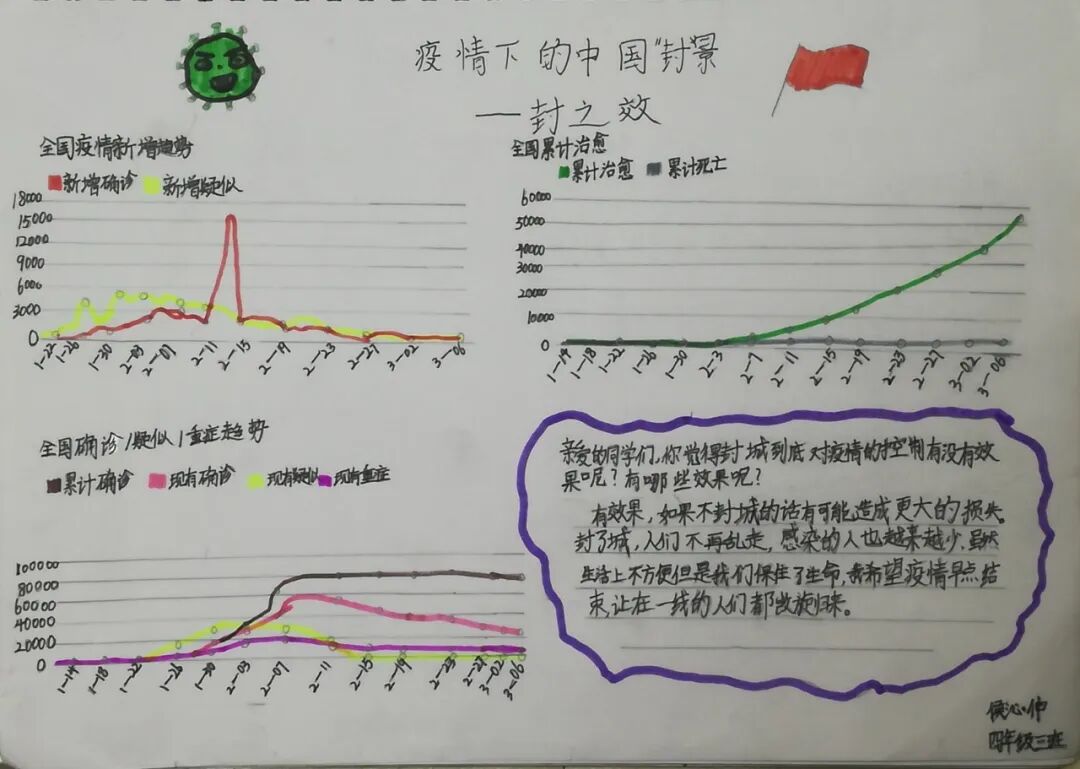 疫情下的中国"封"景
—封之效
全国疫情新增趋势
新增确诊 新增疑似
18000
15000
12000
9000
6000
3000
0
1-22 1-26 1-30 2-03 2-07 2-11 2-15 2-19 2-23 2-27 3-02 3-06
全国累计治愈
累计治愈 累计死亡
60000
50000
40000
30000
20000
10000
0
1-14 1-18 1-22 1-26 1-30 2-3 2-7 2-11 2-15 2-19 2-23 2-27 3-02 3-06
全国确诊/疑似/重症走趋势
累计确诊 现有确诊 现有疑似 现有重症
100000
80000
60000
40000
20000
0
1-14 1-18 1-22 1-26 1-30 2-03 2-07 2-11 2-15 2-19 2-23 2-27 3-02 3-06
亲爱的同学们,你觉得封城到底对疫情的控制有没有效
果呢?有哪些效果呢?
有效果,如果不封城的话有可能造成更大的损失。
封了城,人们不再乱走,感染的人也越来越少,虽然
生活上不方便但是我们保住了生命,我希望疫情早点结
束,让在一线的人们都凯旋归来。
侯沁仲
四年级三班